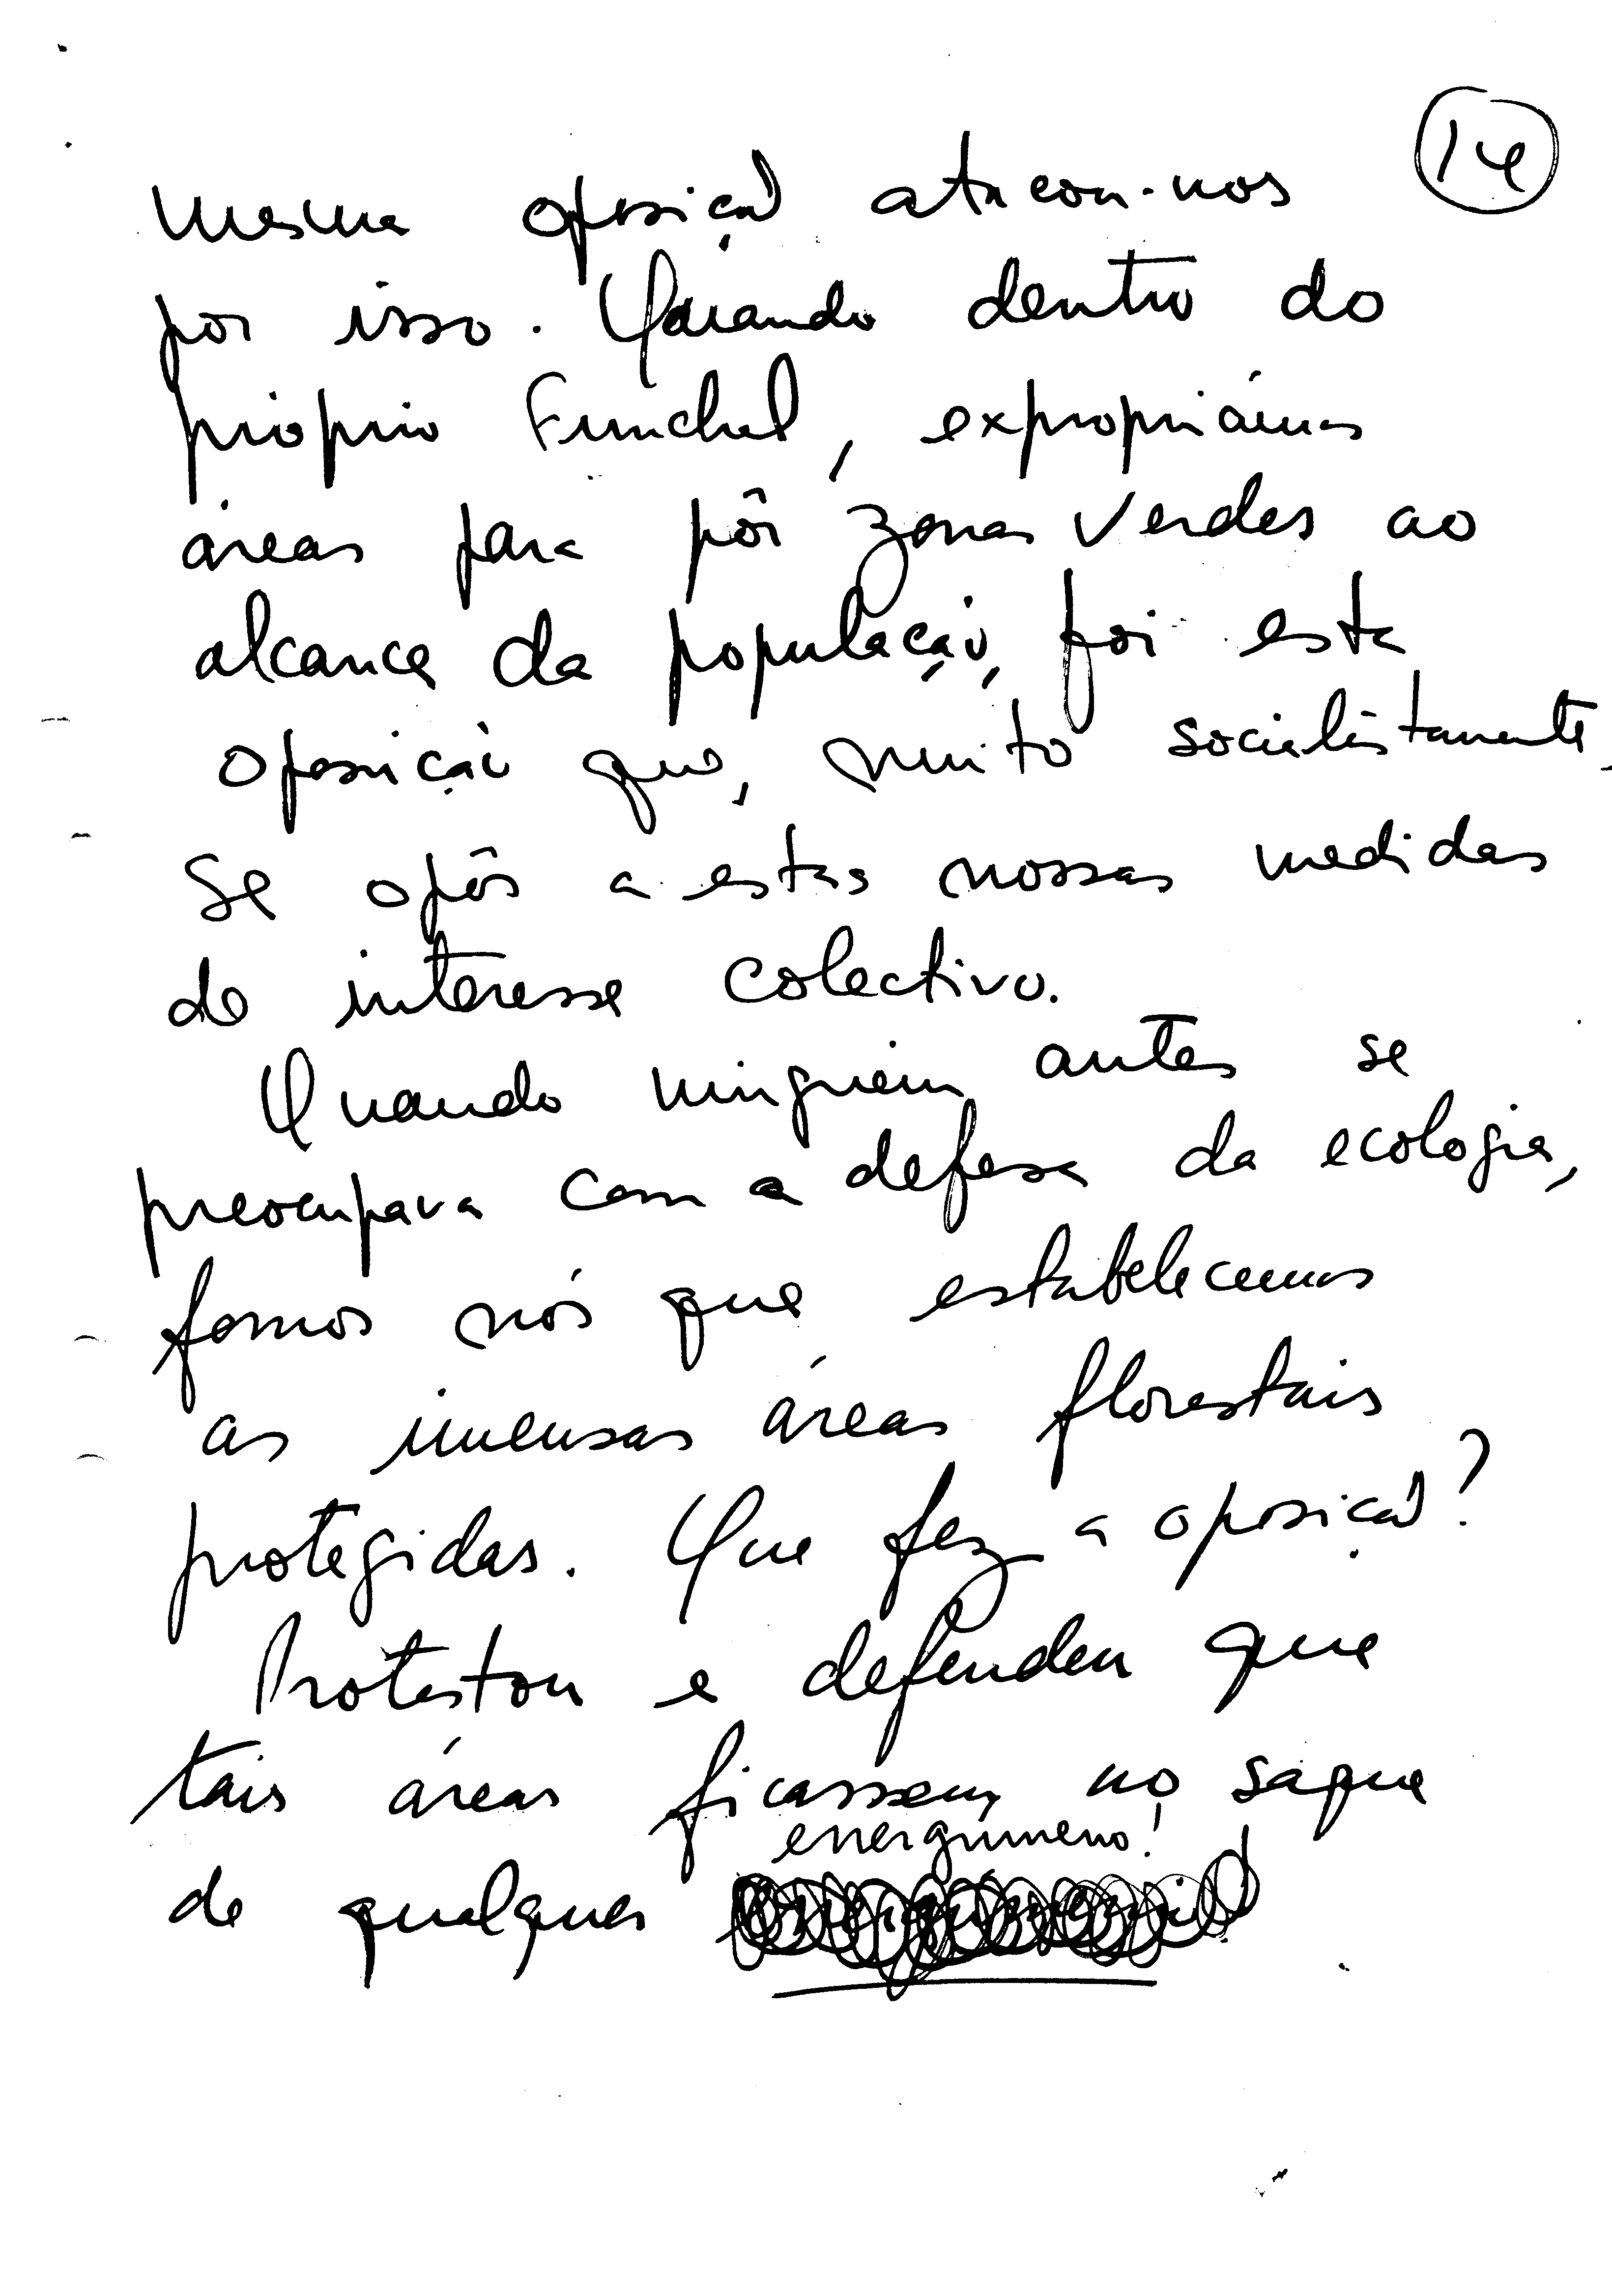 14
mesma oposição atacou-nos
por isso. Quando dentro do
próprio Funchal, expropriámos
áreas para pôr zonas verdes ao
alcance da população, foi esta
oposição que, muito socialistamente,
se opôs a estas nossas medidas
de interesse colectivo.
Quando ninguém antes se
preocupava com a defesa da ecologia,
fomos nós que estabelecemos
as imensas áreas florestais
protegidas. Que fez a oposição?
Protestou e defendeu que
tais áreas ficassem no saque
energúmeno!
de qualquer